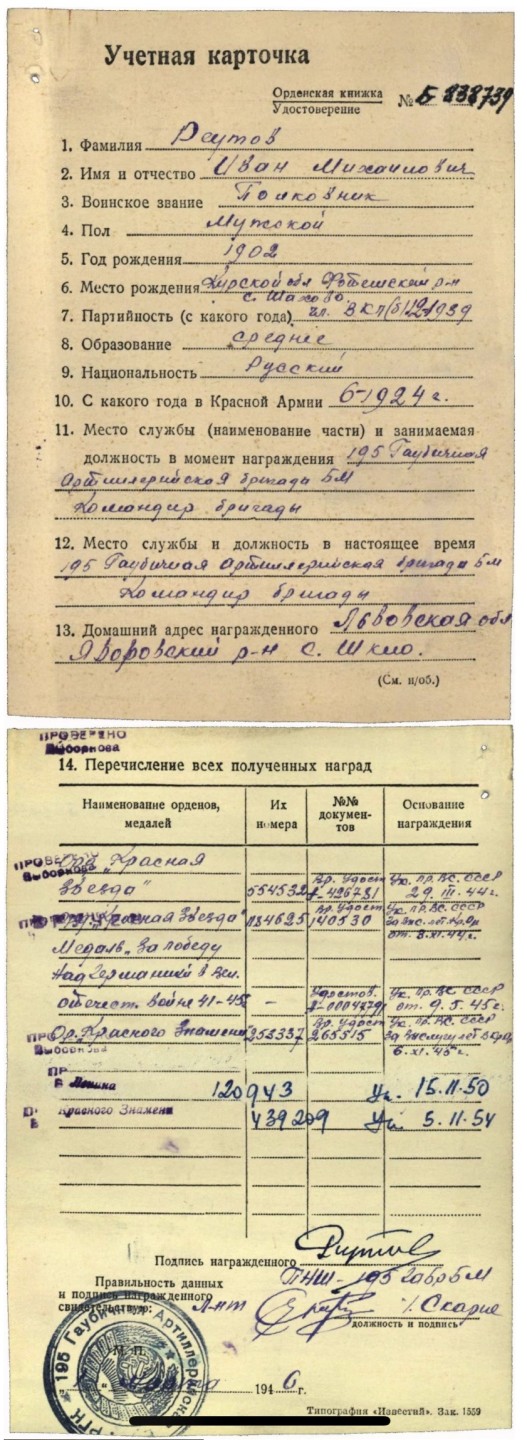 Учетная карточка
Орденская книжка
Удостоверение
№ Б 838739
1. Фамилия Реутов
2. Имя и отчество Иван Михайлович
3. Воинское звание Полковник
4. Пол Мужской
5. Год рождения 1902
6. Место рождения Курской обл Фатежский р-н
с. Шахово
7. Партийность (с какого года) чл. ВКП(б) 1939
8. Образование среднее
9. Национальность Русский
10. С какого года в Красной Армии 6-1924 г.
11. Место службы (наименование части) и занимаемая
должность в момент награждения 195 Гаубичная
Артиллерийская бригада БМ
Командир бригады
12. Место службы и должность в настоящее время
195 Гаубичная Артиллерийская бригада БМ
Командир бригады
13. Домашний адрес награжденного Львовская обл
Яворовский р-н с. Шкло.
(См. н/об.)
ПРОВЕРЕНО
Выборнова
14. Перечисление всех полученных наград
Наименование орденов, медалей
Их номера
№№ документов
Основание награждения
ПРОВЕРЕНО
Выборнова
Орд. „Красная
Звезда" 554532 Вр. Удост 426731 Ук. Пр. ВС. СССР 29. III. 44 г.
Красная Звезда" 1184625 Вр. Удост 140530 Ук. Пр. ВС. СССР За выс. лет Кр. Ар от. 3. XI. 44 г.
Медаль „За победу
над Германией в Вел.
отечест. войне 41-45г - Удостов. Ук. Пр. ВС СССР от. 9. 5. 45 г.
Ор. „Красного Знамени 253337 Вр. Удост 265515 Ук. Пр. ВС. СССР За выслугу лет в Кр. 6. XI. 45 г.
Выборнова
Ленина 120943 Ук. 15.11.50
Красного Знамени 439209 Ук 5.11.54
Подпись награжденного Реутов
Правильность данных
и подпись награжденного
свидетельствую:
ПНШ-1 195 Габр БМ
Л-нт
должность и подпись
М. П.
195 Гаубичная Артиллерийская
РГК
Марта 1946 г.
Типография «Известий». Зак. 1559